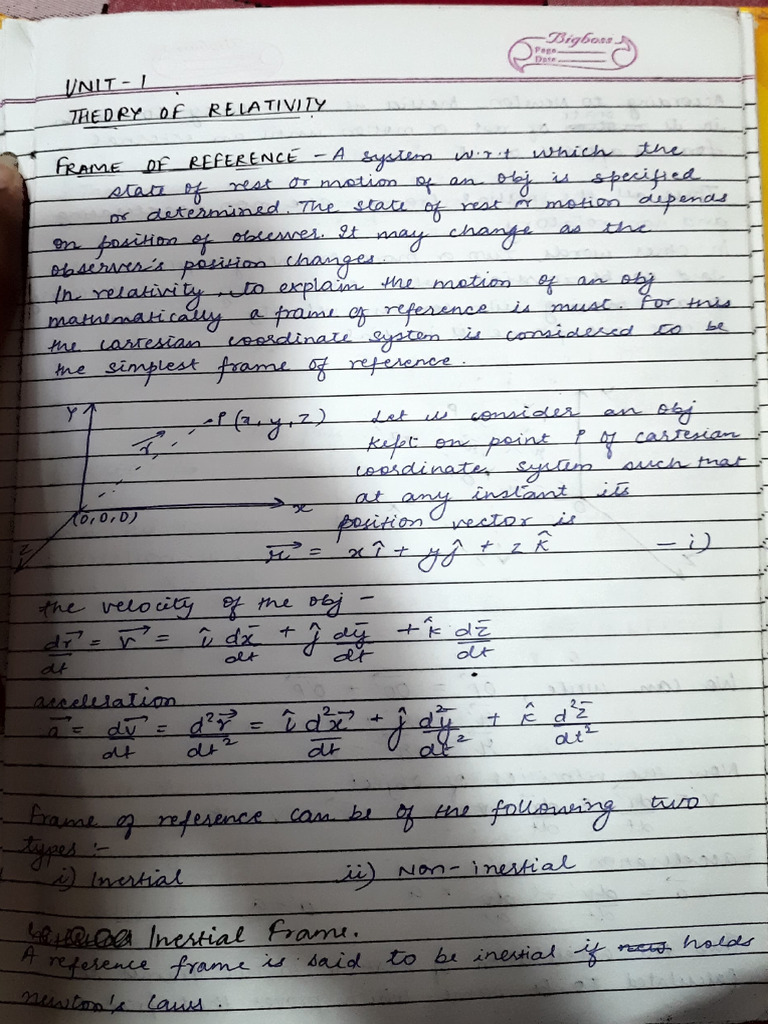 Bigboss
Page
Date
UNIT - 1
THEORY OF RELATIVITY
FRAME OF REFERENCE - A system w.r.t which the
state of rest or motion of an obj is specified
or determined. The state of rest or motion depends
on position of observer. It may change as the
observer's position changes.
In relativity, to explain the motion of an obj
mathematically a frame of reference is must. For this
the cartesian coordinate system is considered to be
the simplest frame of reference.
Y
P (x, y, z)
r⃗
(0,0,0)
x
z
Let us consider an obj
kept on point P of cartesian
coordinate system such that
at any instant its
position vector is
r⃗ = x î + y ĵ + z k̂ - i)
the velocity of the obj -
dr⃗/dt = v⃗ = î dx̄/dt + ĵ dȳ/dt + k̂ dz̄/dt
acceleration
a⃗ = dv⃗/dt = d²r⃗/dt² = î d²x⃗/dt + ĵ d²ȳ/dt² + k̂ d²z̄/dt²
Frame of reference can be of the following two
types :-
i) Inertial ii) Non-inertial
Inertial Frame.
A reference frame is said to be inertial if holds
newton's laws.